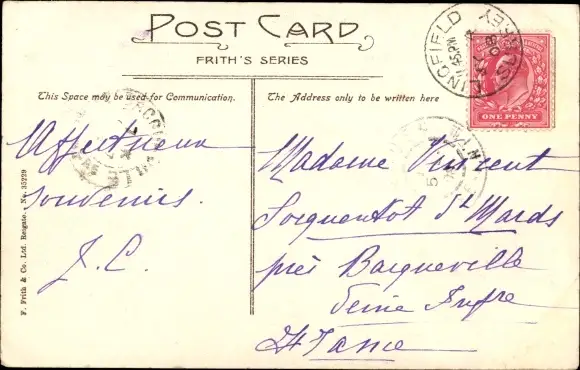 POST CARD
FRITH'S SERIES
This Space may be used for Communication.
The Address only to be written here
LINGFIELD
SURREY
ONE PENNY
Affectueux
souvenirs.
J. C.
Madame Vincent
St Mards
près Bacqueville
Seine Infre
France
F. Frith & Co. Ltd. Reigate. No. 35229